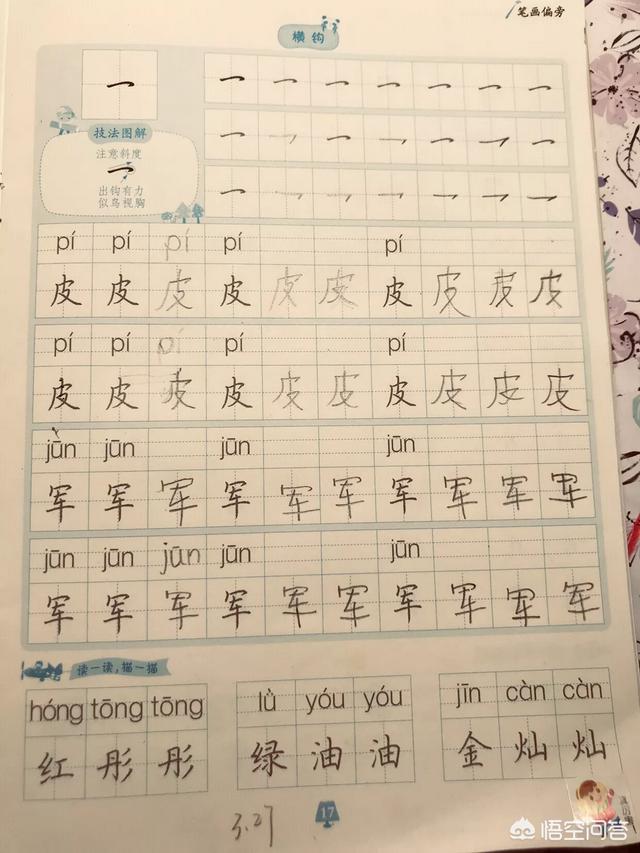 笔画偏旁
横钩
乛 乛 乛 乛 乛 乛 乛 乛
技法图解
注意斜度
乛
出钩有力
似鸟视胸
乛 乛 乛 乛 乛 乛 乛
乛 乛 乛 乛 乛 乛 乛
pí pí pí pí pí
皮 皮 皮 皮 皮 皮 皮 皮 皮 皮
pí pí pí pí pí
皮 皮 皮 皮 皮 皮 皮 皮 皮 皮
jūn jūn jūn jūn
军 军 军 军 军 军 军 军 军 军
jūn jūn jūn jūn jūn
军 军 军 军 军 军 军 军 军 军
读一读,描一描
hóng tōng tōng lǜ yóu yóu jīn càn càn
红 彤 彤 绿 油 油 金 灿 灿
3.27
17
悟空问答